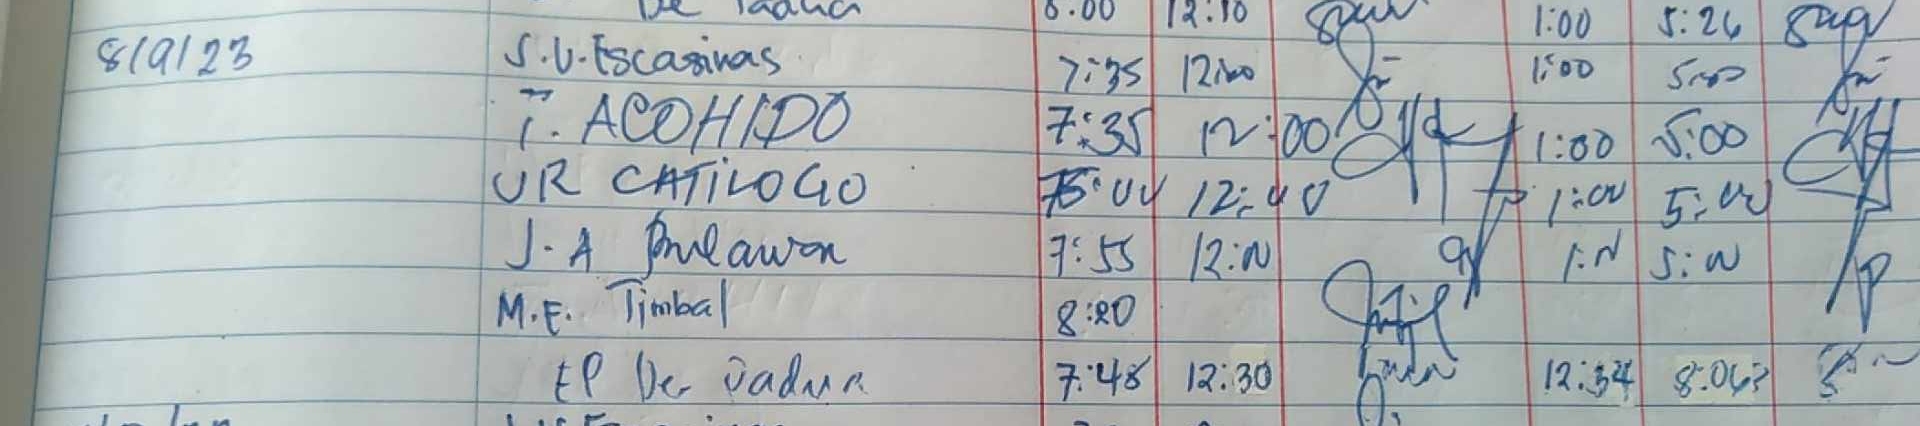 De Padua 8:00 12:10 1:00 5:26
8/9/23 S.V. Escasinas 7:35 12:00 1:00 5:00
T. ACOHIDO 7:35 12:00 1:00 5:00
JR CATILOGO 12:40 1:00 5:00
J.A 7:55 12:N 1:N 5:W
M.E. Timbal 8:20
EP De Padua 7:48 12:30 12:34